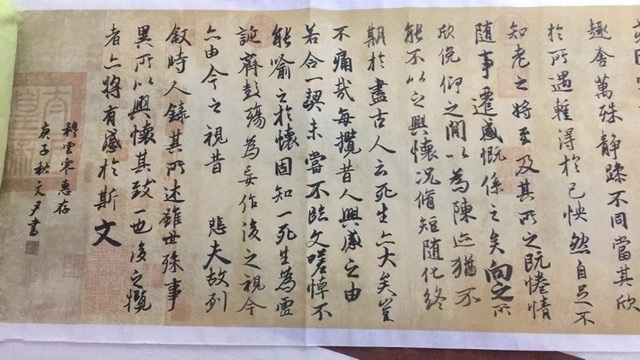 趣舍萬殊靜躁不同當其欣
於所遇暫得於己怏然自足不
知老之將至及其所之既惓情
隨事遷感慨係之矣向之所
欣俛仰之間以為陳迹猶不
能不以之興懷況脩短隨化終
期於盡古人云死生亦大矣豈
不痛哉每攬昔人興感之由
若合一契未嘗不臨文嗟悼不
能喻之於懷固知一死生為虛
誕齊彭殤為妄作後之視今
亦由今之視昔 悲夫故列
叙時人錄其所述雖世殊事
異所以興懷其致一也後之攬
者亦將有感於斯文
雲寒惠存
庚子秋文尹書